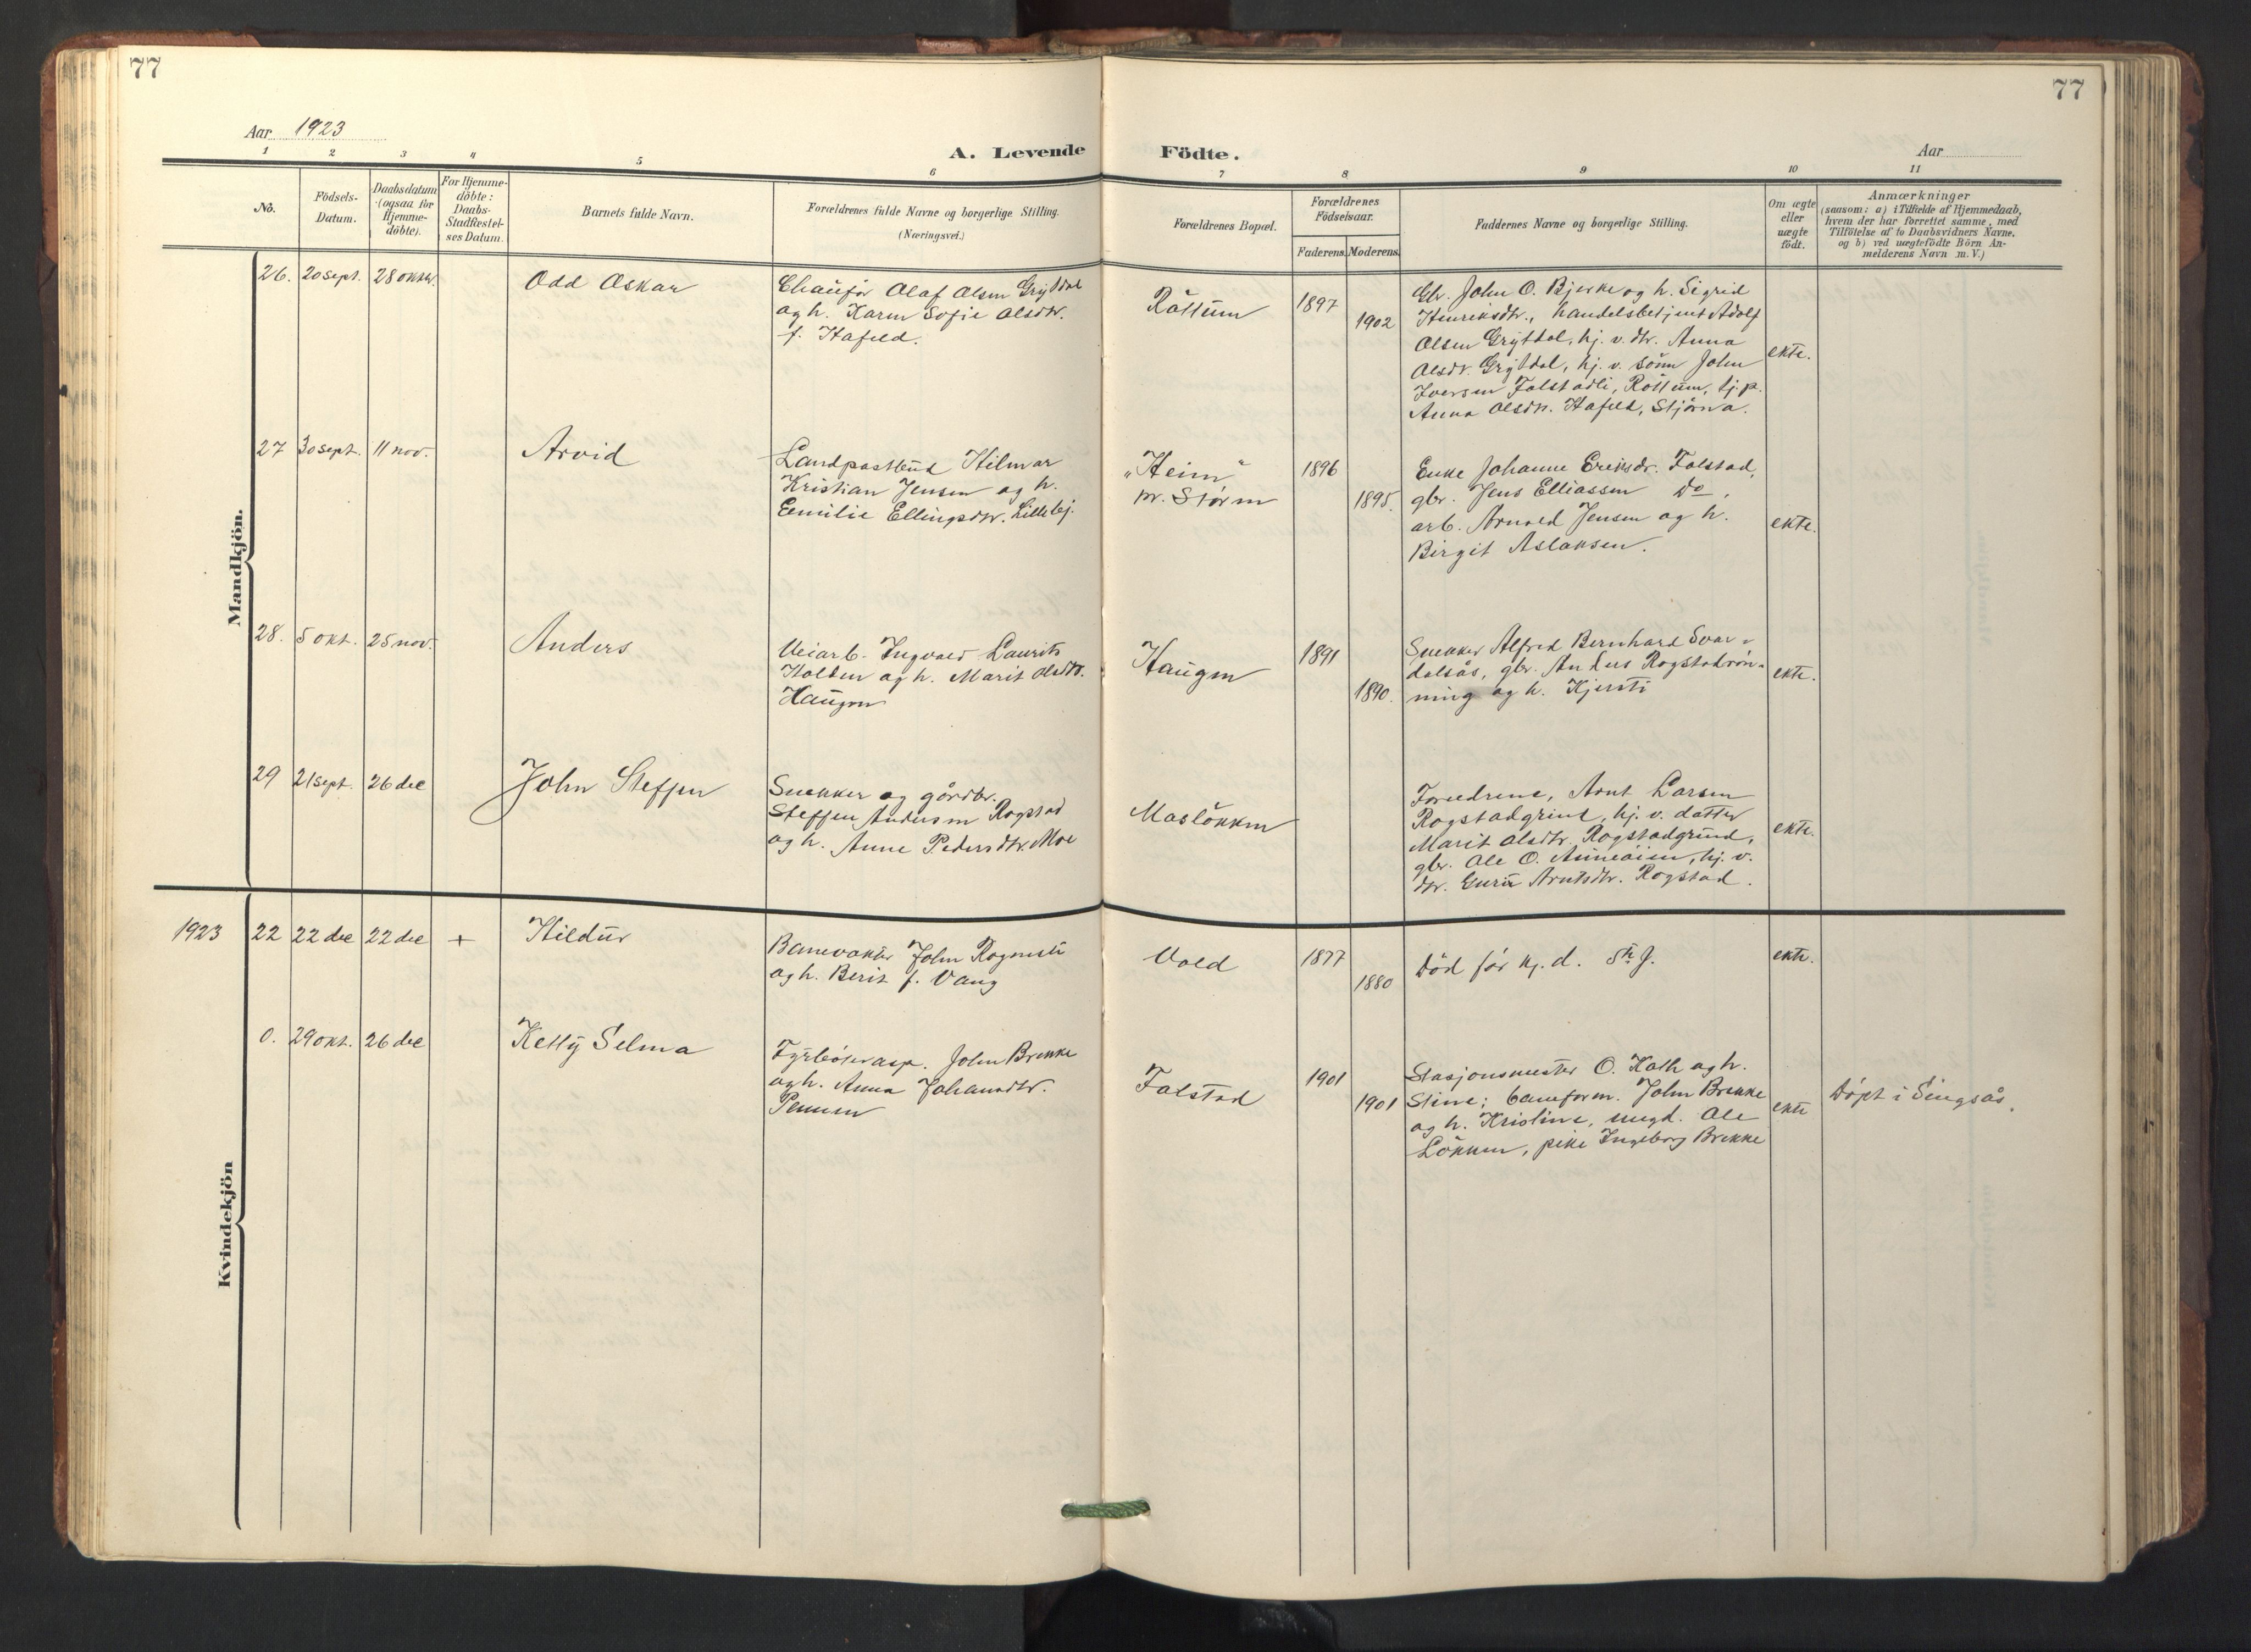 77
77
Aar 1923
A. Levende Födte.
Aar
1 2 3 4 5 6 7 8 9 10 11
No.
Födsels-
Datum.
Daabsdatum
(ogsaa for
Hjemme-
döbte).
For Hjemme-
döbte:
Daabs-
Stadfæstel-
ses Datum.
Barnets fulde Navn.
Forældrenes fulde Navne og borgerlige Stilling.
(Næringsvei.)
Forældrenes Bopæl.
Forældrenes
Födselsaar.
Faderens. Moderens.
Faddernes Navne og borgerlige Stilling.
Om ægte
eller
uægte
födt.
Anmærkninger
(saasom: a) i Tilfælde af Hjemmedaab,
hvem der har forrettet samme, med
Tilföielse af to Daabsvidners Navne,
og b) ved uægtefödte Börn An-
melderens Navn m. V.)
Mandkjön.
26. 20 sept. 28 oktbr. Odd Oskar
Chauför Olaf Olsen Gryttdal
og h. Karen Sofie Olsdtr.
f. Hafeld.
Röttum
1897
1902
Gbr. John O. Bjerke og h. Sigrid
Henriksdtr., handelsbetjent Adolf
Olsen Gryttdal, hj. v. dtr. Anna
Olsdtr. Gryttdal, hj. v. sönn John
Iversen Folstadli, Röttum, tj.p.
Anna Olsdtr. Hafeld, Stjörna.
ekte.
27 30 sept. 11 nov. Arvid
Landpostbud Hilmar
Kristian Jensen og h.
Emilie Ellingsdtr. Lillebj.
"Heim"
pr. Stören
1896
1895.
Enke Johanne Eriksdr. Folstad,
gbr. Jens Elliassen Do,
arb. Arnold Jensen og h.
Birgit Aslaksen.
ekte.
28. 5 okt. 25 nov. Anders
Veiarb. Ingvald Laurits
Holden og h. Marit Olsdtr.
Haugen
Haugen
1891
1890.
Snekker Alfred Bernhard Svar-
dalsås, gbr. Anders Rogstadrön-
ning og h. Kjersti
ekte.
29 21 sept. 26 dec John Steffen
Snekker og gårdbr.
Steffen Andersen Rogstad
og h. Anne Pedersdtr. Moe
Maslökken
Foreldrene, Arnt Larsen
Rogstadgrind, hj. v. datter
Marit Olsdtr. Rogstadgrind,
gbr. Ole O. hj. v.
dtr. Guru Arntsdtr. Rogstad.
ekte.
Kvindekjön
1923 22 22 dec 22 dec + Hildur
Banevokter John Rognesli
og h. Berit f. Vang
Vold
1877
1880
Död för hj. d.
ekte.
0. 29 okt. 26 dec Ketty Selma
Fyrböterasp. John Brekke
og h. Anna Johansdtr.
Pennen
Folstad
1901
1901
Stasjonsmester O. Koth og h.
Stine; baneform. John Brekke
og h. Kristine, ungd. Ole
Lökken, pike Ingeborg Brekke
ekte
Döpt i Singsås.